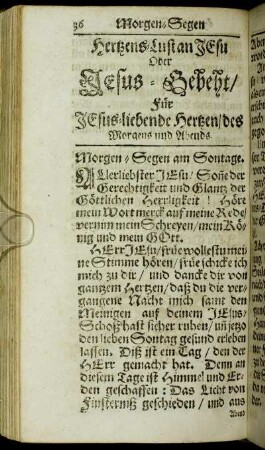 36 Morgen-Segen
Hertzens-Lust an JEsu
Oder
JEsus-Gebeht/
Für
JEsus-liebende Hertzen/des
Morgens und Abends.
Morgen-Segen am Sontage.
ALlerliebster JEsu / Soñe der
Gerechtigkeit und Glantz der
Göttlichen Herrligkeit! Höre
mein Wort merck auf meine Rede/
vernim mein Schreyen/ mein Kö-
nig und mein GOtt.
HErr JEsu/ früe wollestu mei-
ne Stimme hören/ früe schicke ich
mich zu dir / und dancke dir von
gantzem Hertzen/ daß du die ver-
gangene Nacht mich samt den
Meinigen auf deinem JEsus-
Schoß hast sicher ruhen/ uñ jetzo
den lieben Sontag gesund erleben
lassen. Diß ist ein Tag / den der
HErr gemacht hat. Denn an
diesem Tage ist Himmel und Er-
den geschaffen: Das Licht von
Finsterniß geschieden/ und aus
Abend